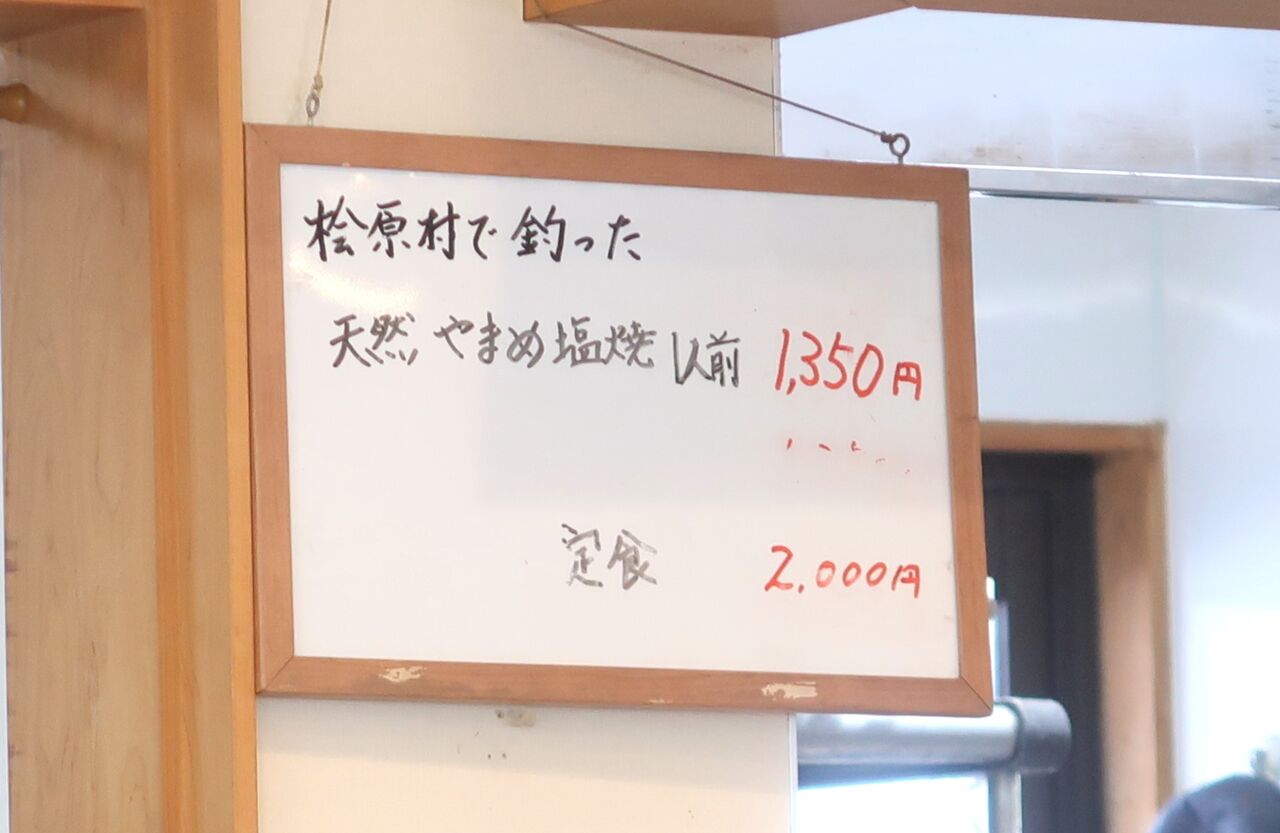 桧原村で釣った
天然やまめ塩焼 1人前 1,350円
定食 2,000円